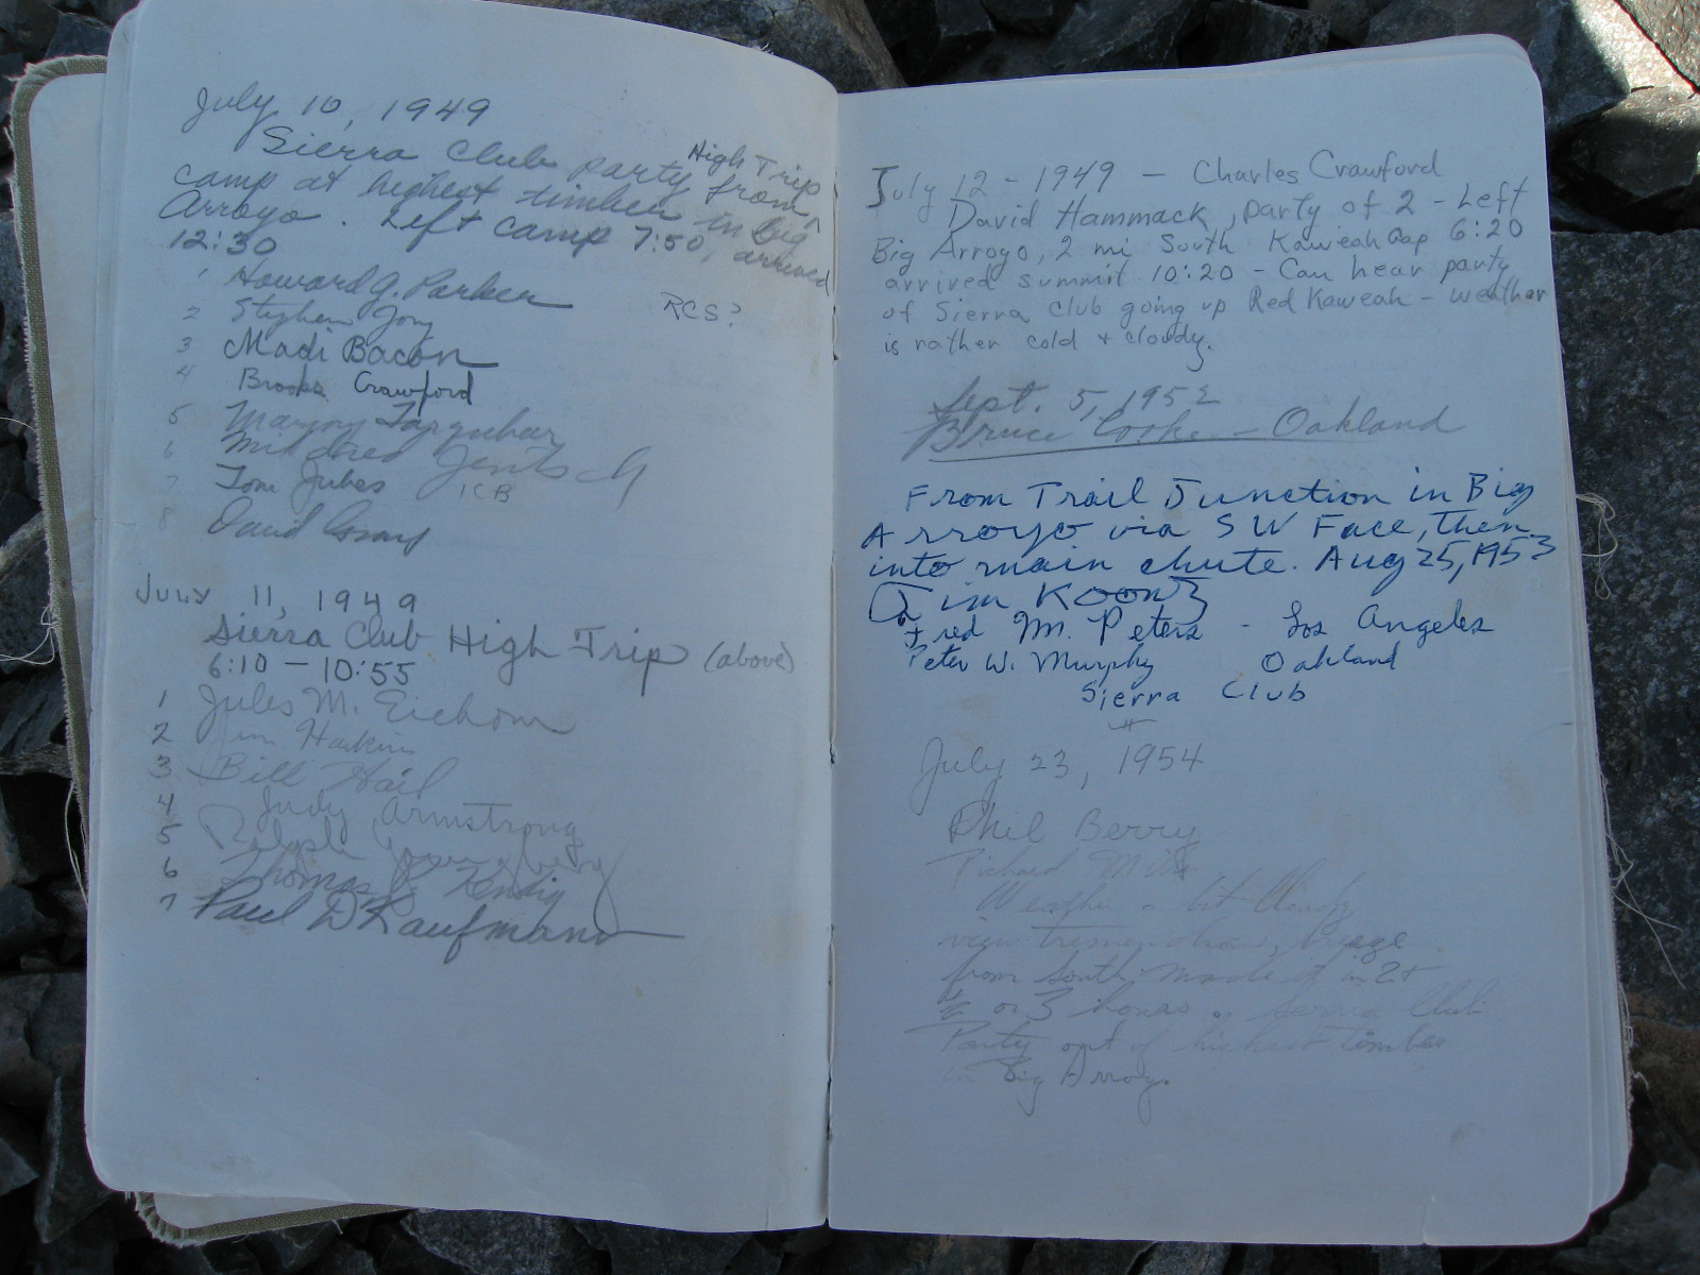 July 10, 1949
Sierra Club party High Trip from
camp at highest timber in Big
Arroyo. Left camp 7:50, arrived
12:30
1 Howard J. Parker
RCS?
2 Stephen Jory
3 Madi Bacon
4 Brooks Crawford
5 Marjory Farquhar
6 Mildred Jentsch
7 Tom Jukes ICB
8 David
July 11, 1949
Sierra Club High Trip (above)
6:10 - 10:55
1 Jules M. Eichorn
2 Jim Harkins
3 Bill Hail
4 Judy Armstrong
5 Ralph Youngberg
6 Thomas Kendig
7 Paul D Kaufmann
July 12 - 1949 - Charles Crawford
David Hammack, party of 2 - Left
Big Arroyo, 2 mi South Kaweah Gap 6:20
arrived summit 10:20 - Can hear party
of Sierra Club going up Red Kaweah - weather
is rather cold + cloudy.
Sept. 5, 1952
Bruce Cooke - Oakland
From Trail Junction in Big
Arroyo via SW Face, then
into main chute. Aug 25, 1953
Jim Koontz
Fred M. Peters - Los Angeles
Peter W. Murphy Oakland
Sierra Club
July 23, 1954
Phil Berry
Richard
Weather a bit cloudy
view tremendous, breeze
from south. made it in 2+
1/2 or 3 hours. Sierra Club
Party out of highest timber
in Big Arroyo.